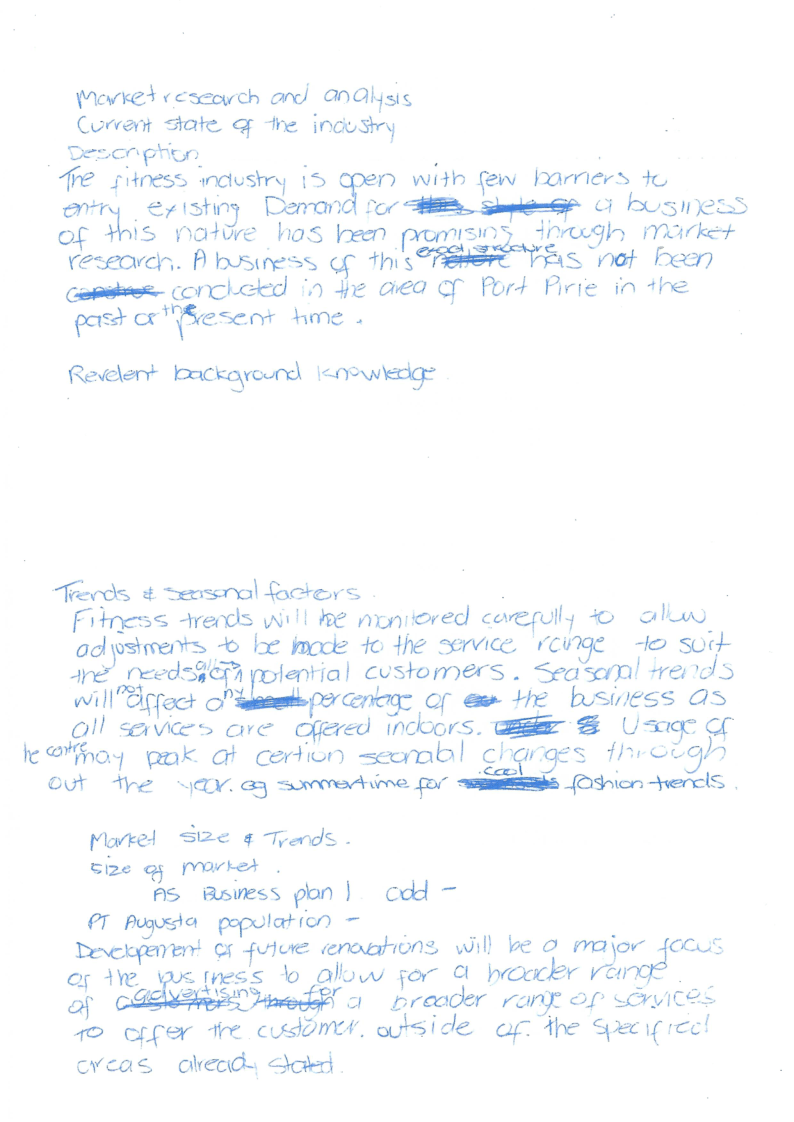 Market research and analysis
Current state of the industry
Description
The fitness industry is open with few barriers to
entry existing Demand for a business
of this nature has been promising through market
research. A business of this has not been
conducted in the area of Port Pirie in the
past or the present time.
Revelent background knowledge.
Trends & seasonal factors.
Fitness trends will be monitored carefully to allow
adjustments to be made to the service range to suit
the needs of all potential customers. Seasonal trends
will not affect any percentage of the business as
all services are offered indoors. Usage of
the centre may peak at certion seonabl changes through
out the year. eg summertime for cool fashion trends.
Market size & Trends.
size of market.
AS Business plan 1 add -
PT Augusta population -
Developement of future renovations will be a major focus
of the business to allow for a broader range
of advertising for a broader range of services
to offer the customer. outside of the specified
areas already stated.